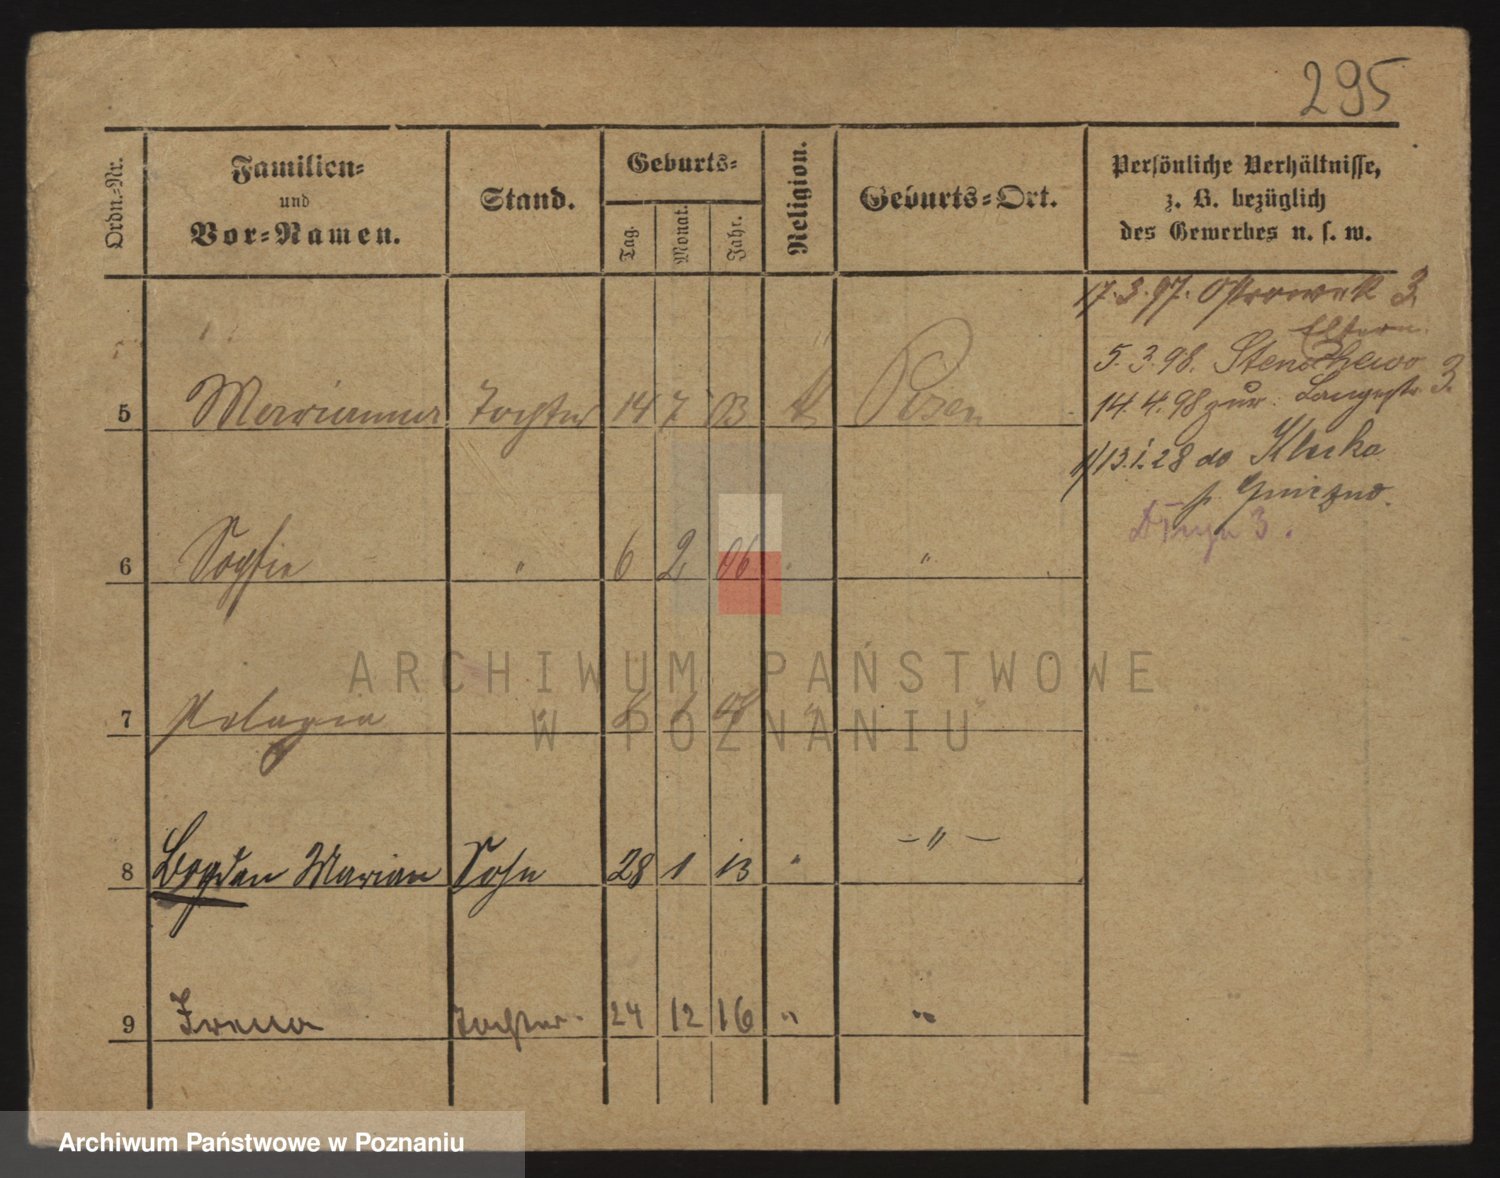 295
Ordn.-Nr.
Familien-
und
Vor-Namen.
Stand.
Geburts-
Tag.
Monat.
Jahr.
Religion.
Geburts-Ort.
Persönliche Verhältnisse,
z. B. bezüglich
des Gewerbes u. s. w.
17.3.97. Ostrowek 3
Eltern
5.3.98. Stenschewo
14.4.98 zur. Langestr 3.
5 Marianna Tochter 14 7 03 k Posen
1/13.1.28 do Klecka
p. Gniezno.
3.
6 Sophie " 6 2 06 " "
7 Pelagia " 1 " "
8 Bogdan Marian Sohn 28 1 13 " - " -
9 Irena Tochter 24 12 16 " "
ARCHIWUM PAŃSTWOWE
W POZNANIU
Archiwum Państwowe w Poznaniu